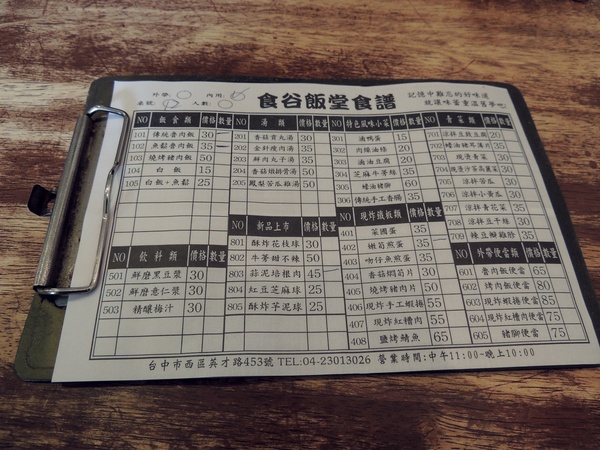 外帶 內用
桌號 人數
食谷飯堂食譜
記憶中難忘的好味道
就讓味蕾重溫舊夢吧
NO 飯食類 價格 數量
101 傳統魯肉飯 30
102 魚鬆魯肉飯 35
103 燒烤豬肉飯 50
104 白飯 15
105 白飯+魚鬆 25
NO 飲料類 價格 數量
501 鮮磨黑豆漿 30
502 鮮磨薏仁漿 30
503 精釀梅汁 30
NO 湯類 價格 數量
201 香菇貢丸湯 30
202 金針瘦肉湯 35
203 鮮肉丸子湯 35
204 香菇排骨湯 50
205 鳳梨苦瓜雞湯 50
NO 新品上市 價格 數量
801 酥炸花枝球 30
802 牛蒡甜不辣 50
803 蒜泥培根肉 45
804 紅豆芝麻球 25
805 酥炸芋泥球 25
NO 特色風味小菜 價格 數量
301 滷鴨蛋 15
302 肉燥油條 20
303 滷油豆腐 20
304 芝麻牛蒡絲 35
305 滷豬腳 60
306 傳統手工香腸 35
NO 現炸鐵板類 價格 數量
401 菜圃蛋 35
402 嫩菊煎蛋 35
403 吻仔魚煎蛋 35
404 香蒜焗筍片 30
405 燒烤豬肉片 50
406 現炸手工蝦捲 55
407 現炸紅糟肉 55
408 鹽烤鯖魚 65
NO 青菜類 價格 數量
701 涼拌豆鼓豆腐 20
702 35
703 現燙青菜 30
704 30
705 涼拌苦瓜 30
706 涼拌小黃瓜 30
707 涼拌青花菜 35
708 涼拌豆干絲 30
709 辣豆瓣雞胗 35
NO 外帶便當類 價格 數量
601 魯肉飯便當 65
602 烤肉飯便當 80
603 現炸蝦捲便當 85
604 現炸紅糟肉便當 75
605 豬腳便當 75
台中市西區英才路453號 TEL:04-23013026 營業時間:中午11:00-晚上10:00